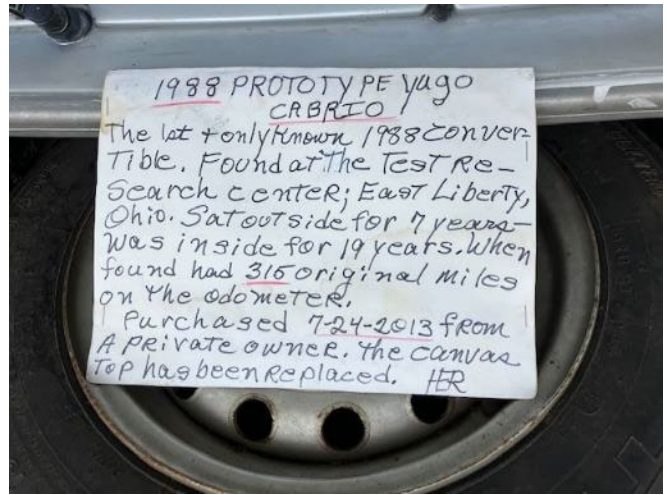 1988 PROTOTYPE Yugo
CABRIO
The 1st + only Known 1988 CONVER-
TIBLE. Found at The TEST RE-
Search center; East Liberty,
Ohio. Sat outside for 7 years-
was inside for 19 years. When
found had 315 original miles
on the odometer.
Purchased 7-24-2013 from
A Private owner. The canvas
Top has been Replaced. HER